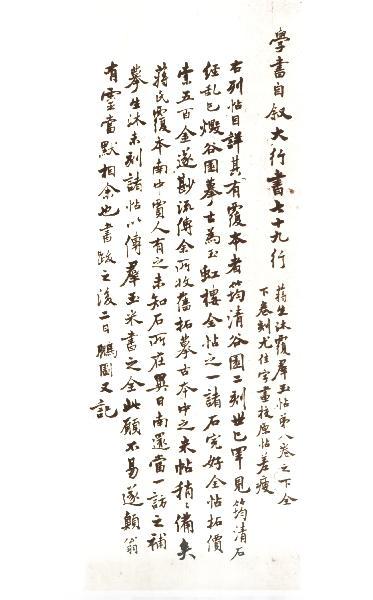 學書自叙大行書七十九行
蔣生沐覆羣玉帖第八卷之下全
下卷刻尤佳字畫校原帖差瘦
右列帖目詳其有覆本者筠清谷園二刻世已罕見筠清石
經亂已燬谷園摹士為玉虹樓全帖之一諸石完好全帖拓價
索五百金遂尠流傳余所收舊拓摹古本中之米帖稍〻備矣
蔣氏覆本南中賈人有之未知石所在異日南還當一訪之補
摹生沐未刻諸帖以傳羣玉米書之全此願不易遂顛翁
有靈當默相余也書跋之後二日鵬圖又記